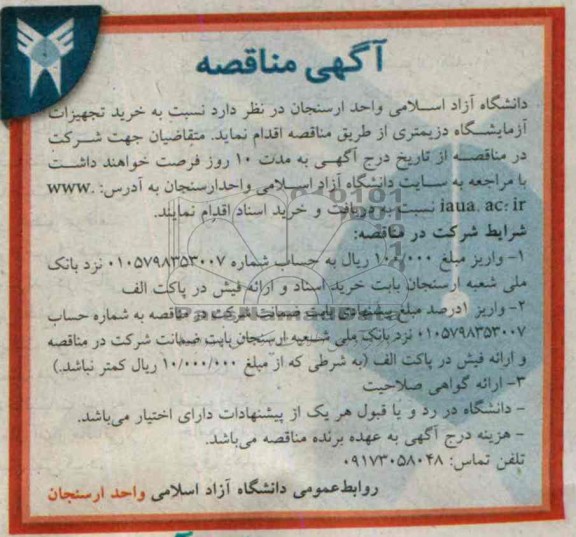 آگهی مناقصه
دانشگاه آزاد اسلامی واحد ارسنجان در نظر دارد نسبت به خرید تجهیزات
آزمایشگاه دزیمتری از طریق مناقصه اقدام نماید. متقاضیان جهت شرکت
در مناقصه از تاریخ درج آگهی به مدت ۱۰ روز فرصت خواهند داشت
با مراجعه به سایت دانشگاه آزاد اسلامی واحدارسنجان به آدرس: www.
iaua. ac: ir نسبت به دریافت و خرید اسناد اقدام نمایند.
شرایط شرکت در مناقصه:
۱- واریز مبلغ ۱۰۰/۰۰۰ ریال به حساب شماره ۰۱۰۵۷۹۸۳۵۳۰۰۷ نزد بانک
ملی شعبه ارسنجان بابت خرید اسناد و ارائه فیش در پاکت الف
۲- واریز ۱درصد مبلغ پیشنهادی بابت ضمانت شرکت در مناقصه به شماره حساب
۰۱۰۵۷۹۸۳۵۳۰۰۷ نزد بانک ملی شعبه ارسنجان بابت ضمانت شرکت در مناقصه
و ارائه فیش در پاکت الف (به شرطی که از مبلغ ۱۰/۰۰۰/۰۰۰ ریال کمتر نباشد.)
۳- ارائه گواهی صلاحیت
- دانشگاه در رد و یا قبول هر یک از پیشنهادات دارای اختیار می‌باشد.
- هزینه درج آگهی به عهده برنده مناقصه می‌باشد.
تلفن تماس: ۰۹۱۷۳۰۵۸۰۴۸
روابط‌عمومی دانشگاه آزاد اسلامی واحد ارسنجان